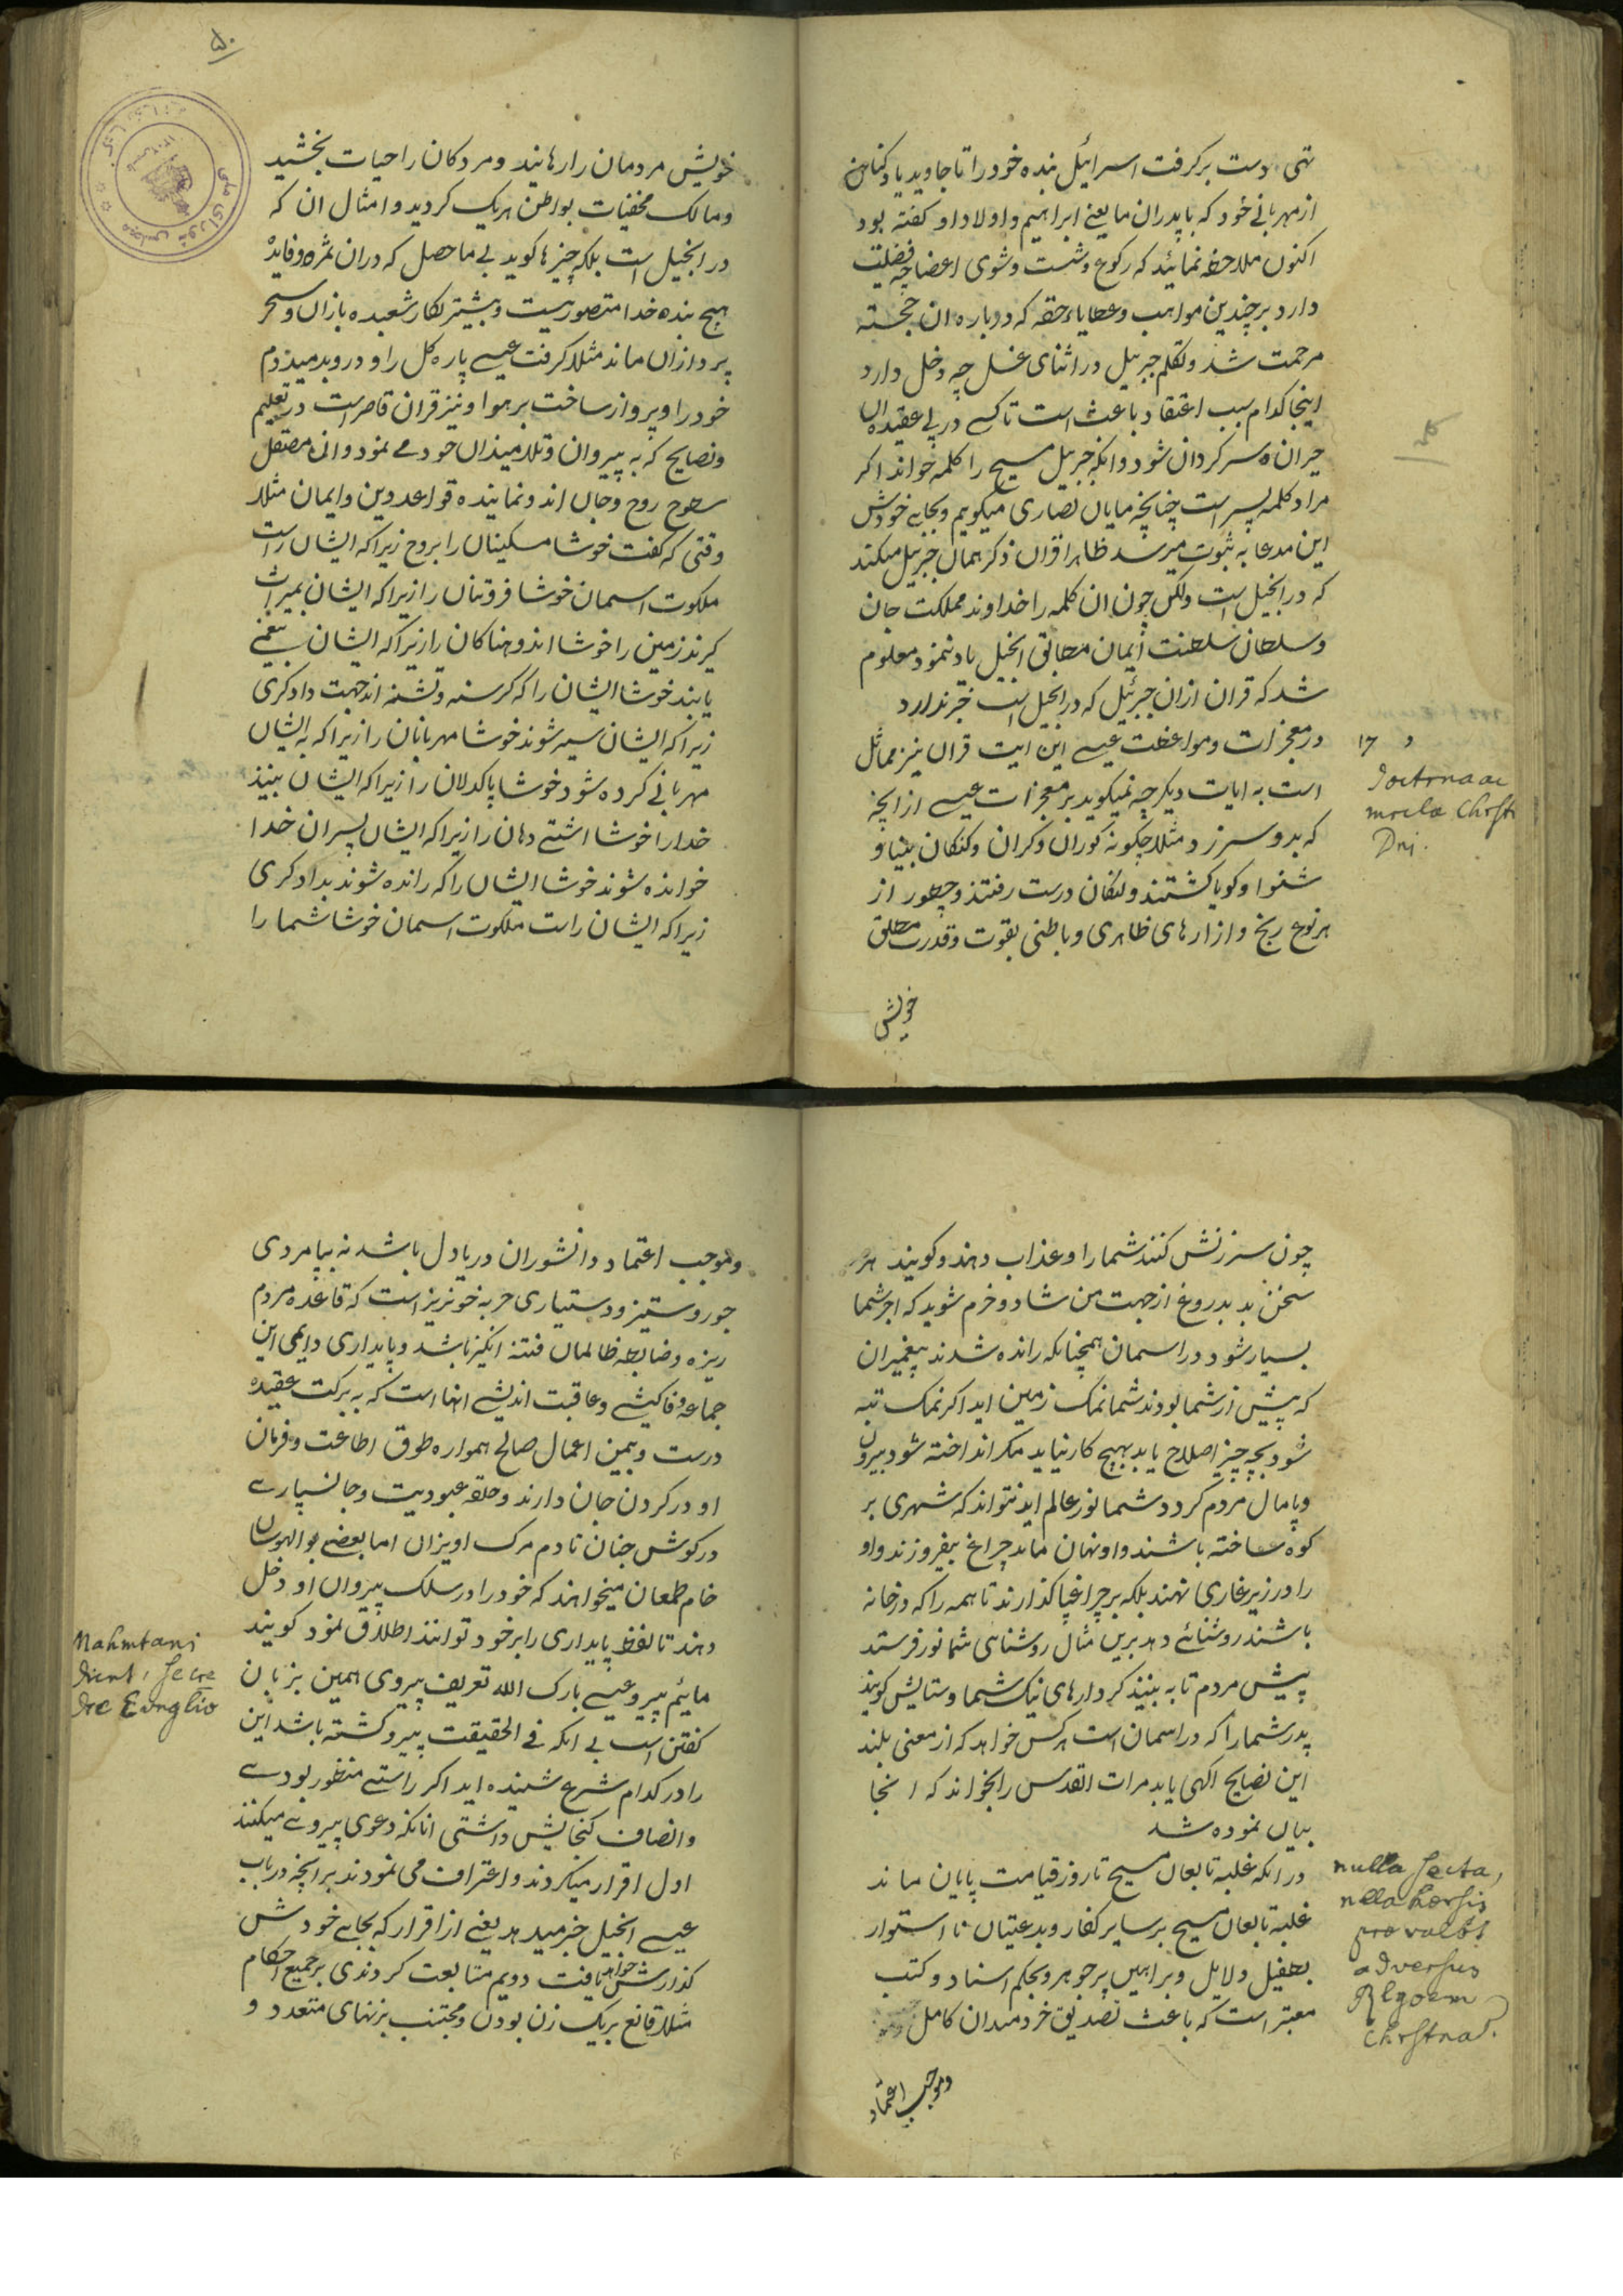 تهی دست برکرفت اسرائیل بنده خود را تا جاوید یاد کنان
از مهربانی خود که با پدران ما یعنی ابراهیم و اولاد او کفته بود
اکنون ملاحظه نمائید که رکوع و شست و شوی اعضا چه فضلیت
دارد بر چندین مواهب و عطایاء حقه که دوباره ان خجسته
مرحمت شد و تکلم جبرییل در اثنای غسل چه دخل دارد
اینجا کدام سبب اعتقاد باعث است تا کسی در پی عقیده ان
حیران ه سرکردان شود و انکه جبرییل مسیح را کلمه خواند اکر
مراد کلمه پسر است چنانچه مایان نصاری میکویم و بجایی خودش
این مدعا به ثبوت میرسد ظاهرا قران ذکر همان جبرییل میکند
که در انجیل است ولکن چون ان کلمه را خداوند مملکت جان
و سلطان سلطنت ایمان مطابق انجیل یاد ننمود معلوم
شد که قران از ان جبرئیل که در انجیل است خبر ندارد
در معجزات و مواعظت عیسی این ایت قران نیز مماثل
است به ایات دیکر چه نمیکوید بر معجزات عیسی از انچه
که بدو سر زد مثلا چکونه کوران و کران و کنکان بینا و
شنوا و کویا کشتند و لنکان درست رفتند و چطور از
هر نوع رنج و ازارهای ظاهری و باطنی بقوت و قدرت مطلق
خویش
17
doctrnaac
mrcla Chrsti
Dni.
۵۰
خویش مردمان را رهانید و مردکان را حیات بخشید
و مالک مخفیات بواطن هریک کردید و امثال ان که
در انجیل است بلکه چیزها کوید بی ماحصل که در ان ثمره و فایده
هیچ بنده خدا متصور نیست و بیشتر بکار شعبده بازان و سحر
پردازان ماند مثلا کرفت عیسی پاره کل را و در وی دمید و دم
خود را و پرواز ساخت بر هوا و نیز قران قاصر است در تعلیم
و نصایح که به پیروان و تلامیذان خود می نمود و انی مصقل
سطوح روح و جان اند و نماینده قواعد دین و ایمان مثلا
وقتی که کفت خوشا مسکینان را بروح زیرا که ایشان راست
ملکوت اسمان خوشا فروتنان را زیرا که ایشان بمیراث
کیرند زمین را خوشا اندوهناکان را زیرا که ایشان بیغمی
یابند خوشا ایشان را که کرسنه و تشنه اند جهت دادکری
زیرا که ایشان سیر شوند خوشا مهربانان را زیرا که به ایشان
مهربانی کرده شود خوشا پاکدلان را زیرا که ایشان بینند
خدا را خوشا اشتی دهان را زیرا که ایشان پسران خدا
خوانده شوند خوشا ایشان را که رانده شوند بدادکری
زیرا که ایشان راست ملکوت اسمان خوشا شما را
چون سرزنش کنند شما را و عذاب دهند و کویند هر
سخن بد بدروغ از جهت من شاد و خرم شوید که اجر شما
بسیار شود در اسمان همچنانکه رانده شدند پیغمبران
که پیش از شما بودند شما نمک زمین اید اکر نمک تبه
شود بچه چیز اصلاح یابد بهیچ کار نیاید مکر انداخته شود بیرون
و پامال مردم کردد شما نور عالم اید نتواند که شهری بر
کوه ساخته باشند و او نهان ماند چراغ بیفروزند و او
را در زیر غاری نهند بلکه بر چراغپا کذارند تا همه را که در خانه
باشند روشنائے دهد برین مثال روشنایی شما نور فرستد
پیش مردم تا به بینند کردارهای نیک شما و ستایش کویند
پدر شما را که در اسمان است هرکس خواهد که از معنی بلند
این نصایح الهی یابد مرات القدس را بخواند که انجا
بیان نموده شد
در انکه غلبه تابعان مسیح تا روز قیامت پایان ماند
غلبه تابعان مسیح بر سایر کفار و بدعتیان تا استوار
بطفیل دلایل و براهین پر جوهر و بحکم اسناد و کتب
معتبر است که باعث تصدیق خردمندان کامل
و موجب اعتماد
nulla secta,
nlla hærsis
prævalbt
adversus
Rlgoem
Chrstna.
و موجب اعتماد دانشوران دریادل باشد نه بپامردی
جور و ستیز و دستیاری حربه خونریز است که قاعده مردم
ریزه و ضابطه ظالمان فتنه انکیز باشد و پایداری دایمی این
جماعه وفاکیشی و عاقبت اندیشے انها است که به برکت عقیده
درست و بیمن اعمال صالح همواره طوق اطاعت و فرمان
او در کردن جان دارند و حلقه عبودیت و جانسپاری
در کوش جنان تا دم مرک اویزان اما بعضی بوالهوسان
خام طمعان میخواهند که خود را در سلک پیروان او دخل
دهند تا لفظ پایداری را بر خود توانند اطلاق نمود کویند
مائیم پیرو عیسی بارک الله تعریف پیروی همین بزبان
کفتن است بی انکه فی الحقیقت پیرو کشته باشد این
را در کدام شرع شنیده اید اکر راستے منظور بودے
و انصاف کنجایش داشتی انانکه دعوی پیروے میکنند
اول اقرار میکردند و اعتراف می نمودند بر انچه در باب
عیسی انجیل خبر میدهد یعنی از اقرار که بجایے خودش
کذارش خواهد یافت دویم متابعت کردندی بر جمیع احکام
مثلا قانع بریک زن بودن و مجتنب بزنهای متعدد و
Mahmtani
dicnt, se cre
dre Evnglio